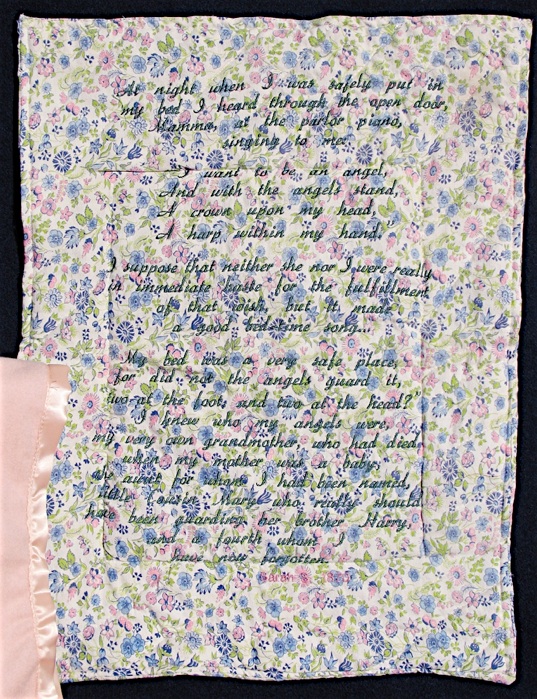 At night when I was safely put in
my bed I heard through the open door,
Mamma, at the parlor piano,
singing to me:
"I want to be an angel,
And with the angels stand,
A crown upon my head,
A harp within my hand."
I suppose that neither she nor I were really
in immediate haste for the fulfillment
of that wish, but it made
a good bed-time song...
My bed was a very safe place,
for did not the angels guard it,
two at the foot, and two at the head?"
I knew who my angels were,
my very own grandmother who had died
when my mother was a baby,
the aunt for whom I had been named,
little Cousin Mary who really should
have been guarding her brother Harry,
and a fourth whom I
have now forgotten.
Sarah